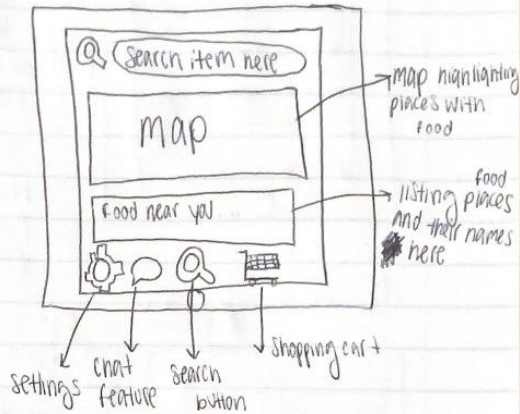 Search item here
map
food near you
map highlighting
places with
food
food
listing places
and their names
here
settings
chat
feature
search
button
shopping cart